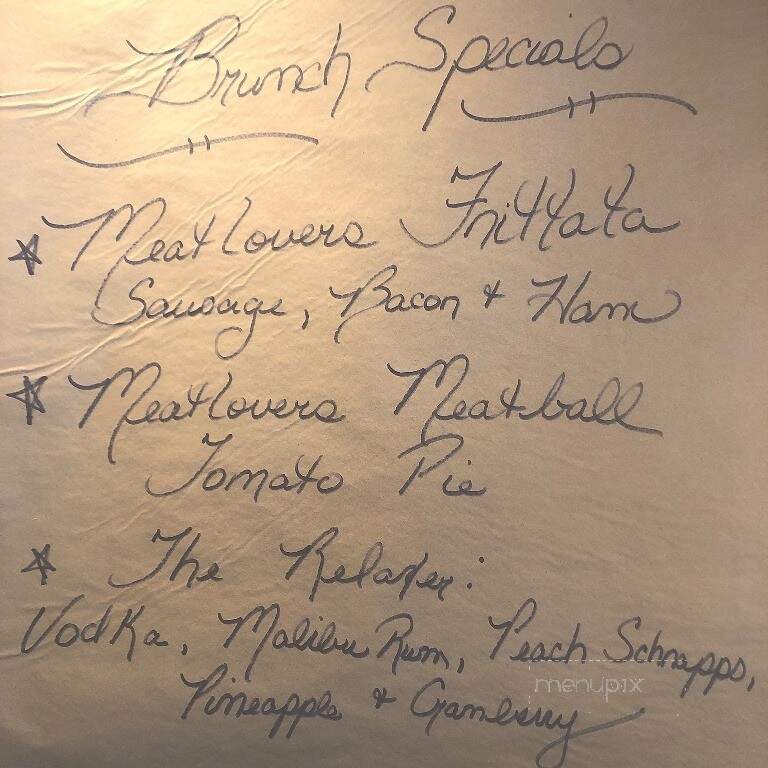 Brunch Specials
Meatlovers Frittata
Sausage, Bacon & Ham
Meatlovers Meatball
Tomato Pie
The Relaxer:
Vodka, Malibu Rum, Peach Schnapps,
menupix
Pineapple &